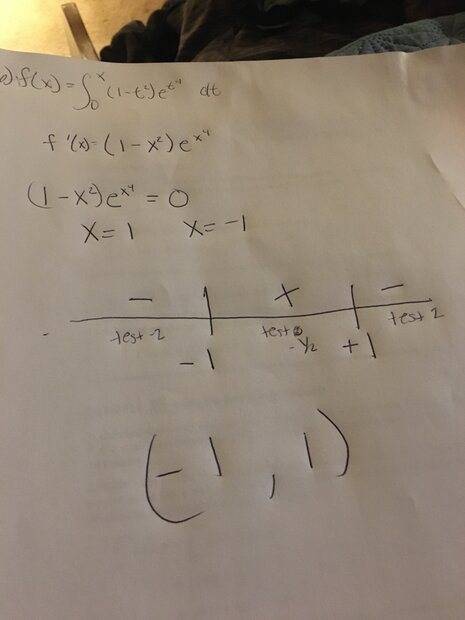 e) f(x) = ∫₀ˣ (1-t²)e^{t⁴} dt
f'(x) = (1-x²)e^{x⁴}
(1-x²)e^{x⁴} = 0
x=1 x=-1
- + -
test -2 test -½ test 2
-1 +1
(-1, 1)